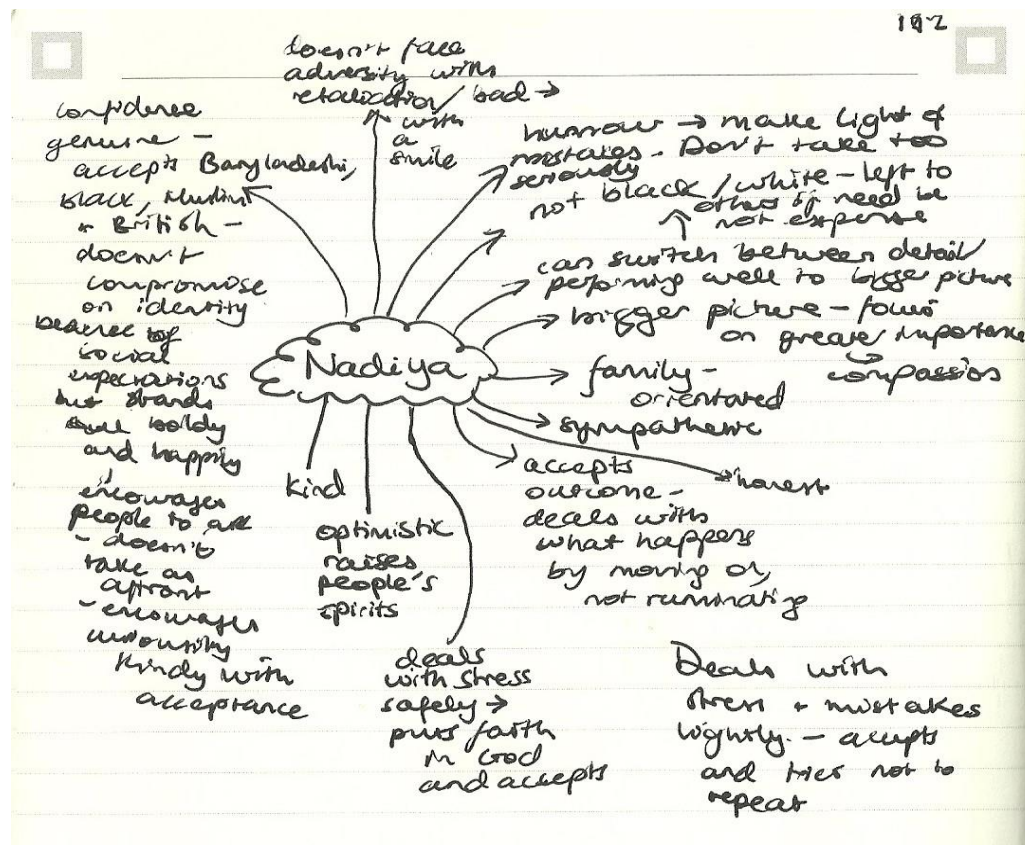 192
doesn't face
adversity with
retaliation / bad →
with
a
smile
confidence
genuine –
accepts Bangladeshi,
black, Muslim
+ British –
doesn't
compromise
on identity
of
social
expectations
but stands
boldly
and happily
encourages
people to ask
- doesn't
take as
affront
- encourages
curiousity
kindly with
acceptance
humour → make light of
mistakes. Don't take too
seriously
not black / white – left to
others if need be
not expense
can switch between detail
performing well to bigger picture
bigger picture – focus
on greater importance
compassion
Nadiya
family-
orientated
sympathetic
honest
accepts
outcome –
deals with
what happens
by moving on,
not ruminating
kind
optimistic
raises
people's
spirits
deals
with stress
safely →
puts faith
in God
and accepts
Deals with
stress + mistakes
lightly. – accepts
and tries not to
repeat